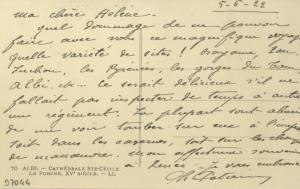 5-6-22
ma chère Hélène.
quel dommage de ne pouvoir
faire avec vous ce magnifique voyage
quelle variété de sites ! Royame, Lu
chon, les Pyrénées, les gorges du Tarn
Albi, etc... ce serait délicieux s'il ne
fallait pas inspecter de temps à autre
un régiment. La plupart sont
de me voir tomber sur eux à
soit dans les casernes, soit sur les champs
de manœuvre. Mon affectueux souvenir
à Je vous embrasse
70 ALBI. – CATHÉDRALE STE-CÉCILE.
LE PORCHE, XVe SIÈCLE. – LL
97044